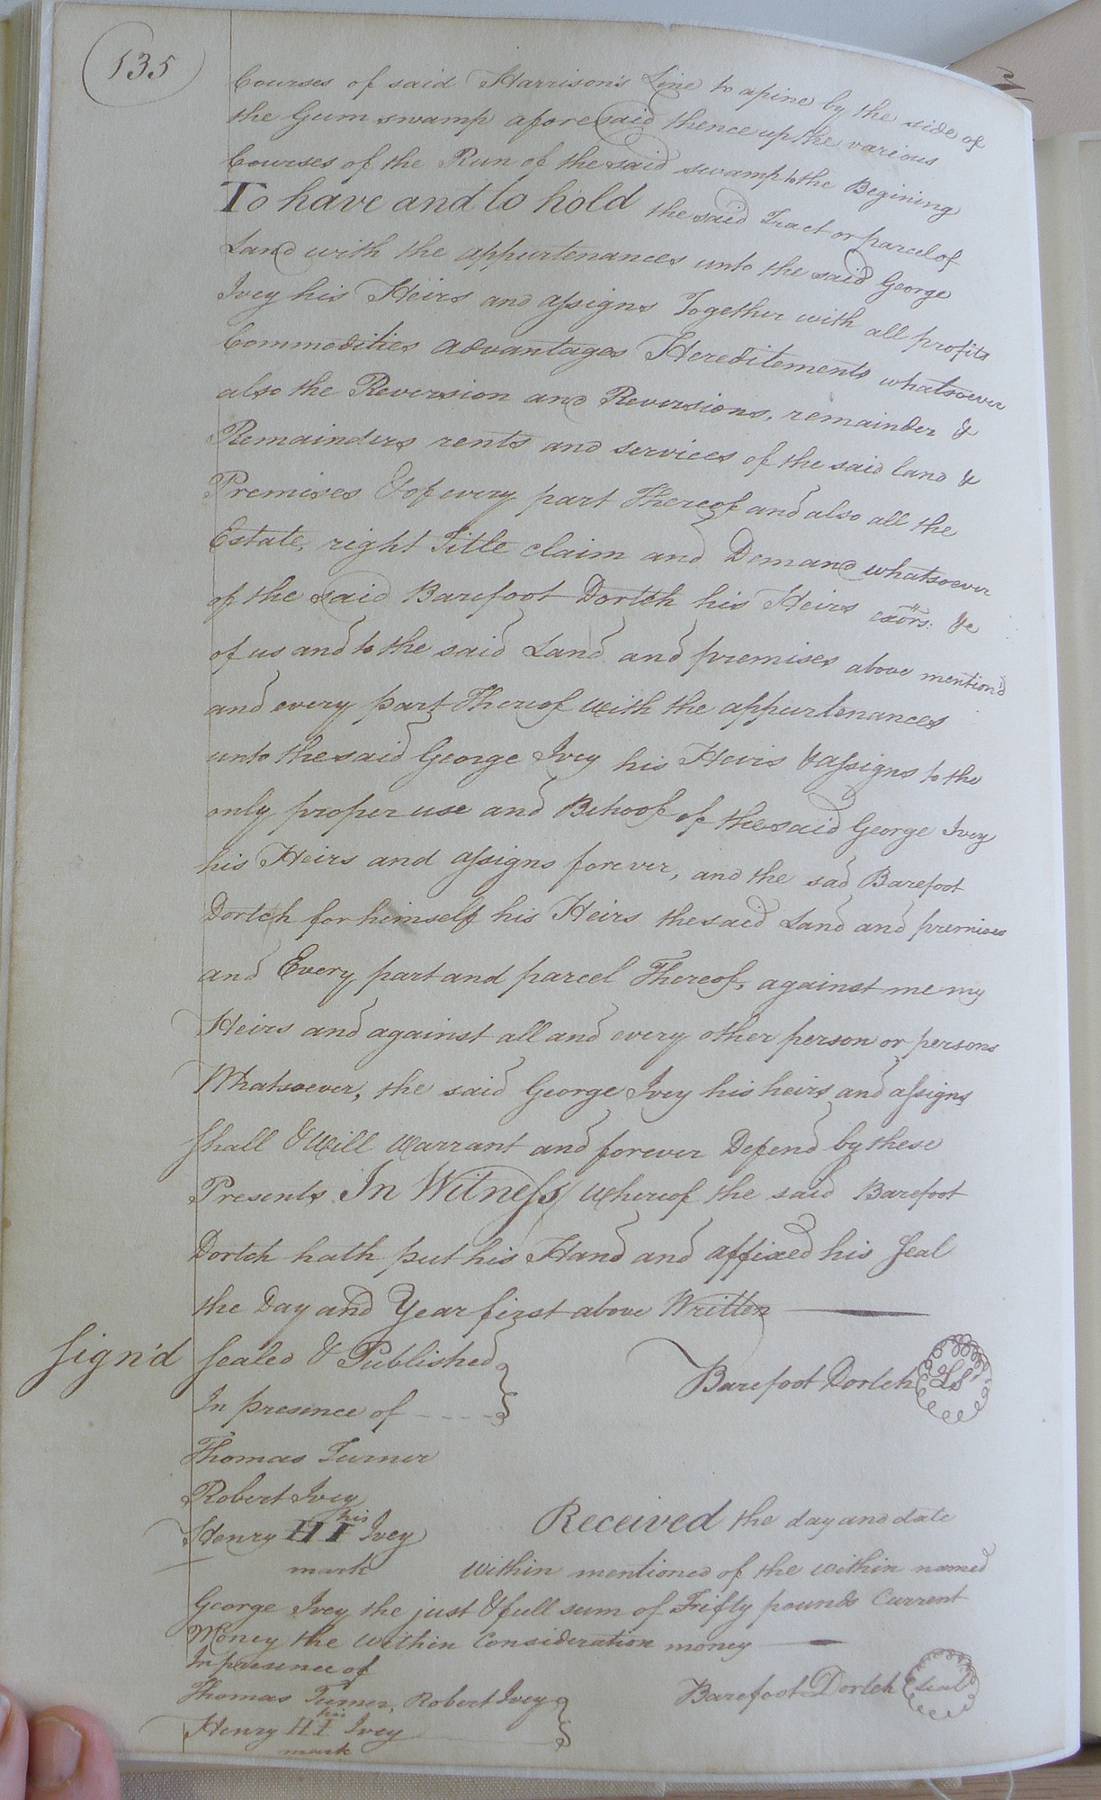 135
Courses of said Harrison's Line to a pine by the side of
the Gum swamp aforesaid thence up the various
Courses of the Run of the said swamp to the Begining
To have and to hold the said Tract or parcel of
Land with the appurtenances unto the said George
Ivey his Heirs and assigns Together with all profits
Commodities advantages Hereditements whatsoever
also the Reversion and Reversions, remainder &
Remainders rents and services of the said land &
Premises & of every part Thereof and also all the
Estate, right Title claim and Demand whatsoever
of the said Barefoot Dortch his Heirs exors. &c
of us and to the said Land and premises above mention'd
and every part Thereof with the appurtenances
unto the said George Ivey his Heirs & assigns to the
only proper use and Behoof of the said George Ivey
his Heirs and assigns forever, and the sad Barefoot
Dortch for himself his Heirs the said Land and premises
and Every part and parcel Thereof, against me my
Heirs and against all and every other person or persons
Whatsoever, the said George Ivey his heirs and assigns
shall & Will Warrant and forever Defend by these
Presents, In Witness whereof the said Barefoot
Dortch hath put his Hand and affixed his Seal
the Day and Year first above Written
Sign'd Sealed & Published
In presence of
Barefoot Dortch LS
Thomas Turner
Robert Ivey
his
Henry H I Ivey
mark
Received the day and date
within mentioned of the within named
George Ivey the just & full sum of Fifty pounds Current
Money the within Consideration money
In presence of
Thomas Turner, Robert Ivey
his
Henry H I Ivey
mark
Barefoot Dortch Seal